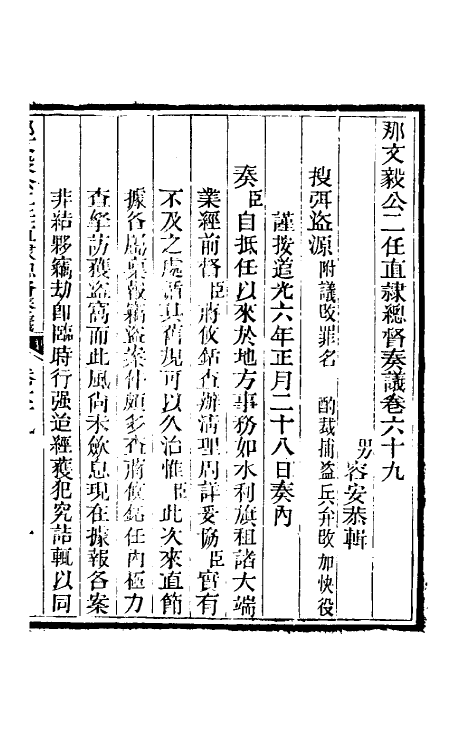 那文毅公二任直隸總督奏議卷六十九
男容安恭輯
搜弭盜源附議改罪名 酌裁捕盜兵弁改加快役
謹按道光六年正月二十八日奏內
奏臣自抵任以來於地方事務如水利旗租諸大端
業經前督臣蔣攸銛查辦清理周詳妥協臣實有
不及之處循其舊規可以久治惟臣此次來直節
據各屬稟報竊盜案件頗多查蔣攸銛任內極力
查拏訪獲盜窩而此風尚未歛息現在據報各案
非結夥竊劫即臨時行强迨經獲犯究詰輒以同